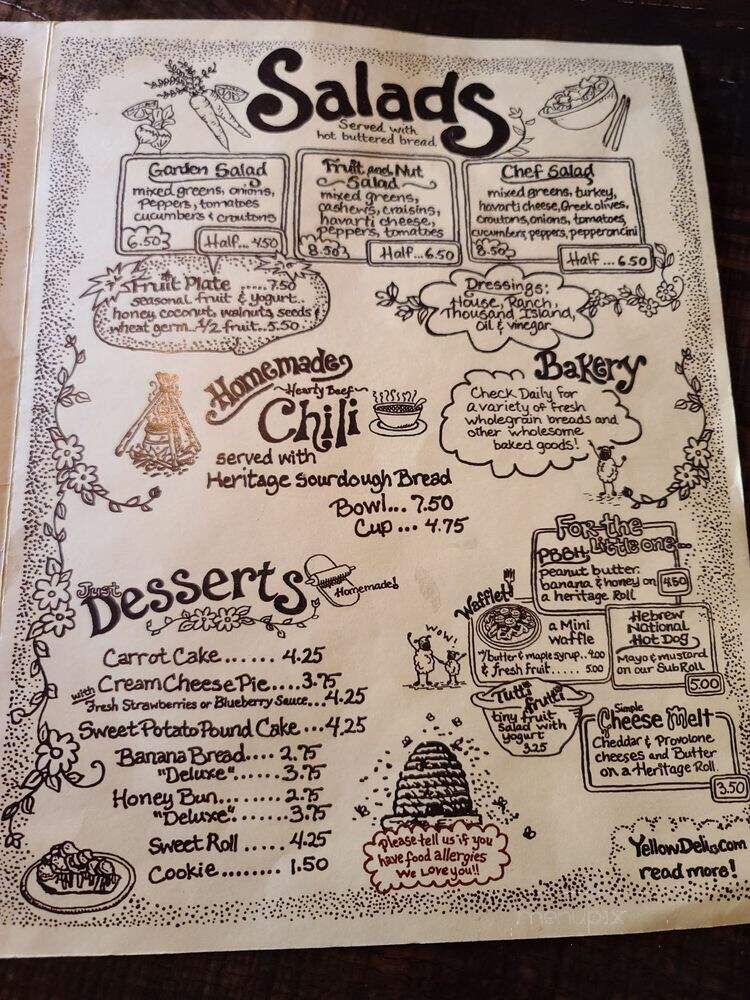 Salads
Served with
hot buttered bread
Garden Salad
mixed greens, onions,
Peppers, tomatoes
cucumbers & croutons
6.50
Half... 4.50
Fruit and Nut
Salad
mixed greens,
cashews, craisins,
havarti cheese,
peppers, tomatoes
8.50
Half... 6.50
Chef Salad
mixed greens, turkey,
havarti cheese, Greek olives,
croutons, onions, tomatoes,
cucumbers, peppers, pepperoncini
8.50
Half... 6.50
Fruit Plate ......7.50
seasonal fruit & yogurt..
honey, coconut, walnuts, seeds &
wheat germ...1/2 fruit..5.50
Dressings:
House, Ranch,
Thousand Island,
Oil & vinegar
Homemade
Hearty Beef
Chili
served with
Heritage Sourdough Bread
Bowl... 7.50
Cup ... 4.75
Bakery
Check Daily for
a variety of fresh
wholegrain breads and
other wholesome
baked goods!
For the
Little one...
PBBH
peanut butter,
banana & honey on
a heritage Roll
4.50
Waffle!
a Mini
Waffle
w/butter & maple syrup..4.00
& fresh fruit..... 5.00
Wow!
Hebrew
National
Hot Dog
Mayo & mustard
on our Sub Roll
5.00
Tutti frutti
tiny fruit
Salad with
yogurt
3.25
Simple
Cheese Melt
Cheddar & Provolone
cheeses and Butter
on a Heritage Roll
3.50
Just
Desserts
Homemade!
Carrot Cake...... 4.25
Cream Cheese Pie....3.75
with Fresh Strawberries or Blueberry Sauce...4.25
Sweet Potato Pound Cake ...4.25
Banana Bread.... 2.75
"Deluxe"....... 3.75
Honey Bun........ 2.75
"Deluxe"....... 3.75
Sweet Roll ..... 4.25
Cookie........ 1.50
Please tell us if you
have food allergies
We Love you!!
YellowDeli.com
read more!
menupix